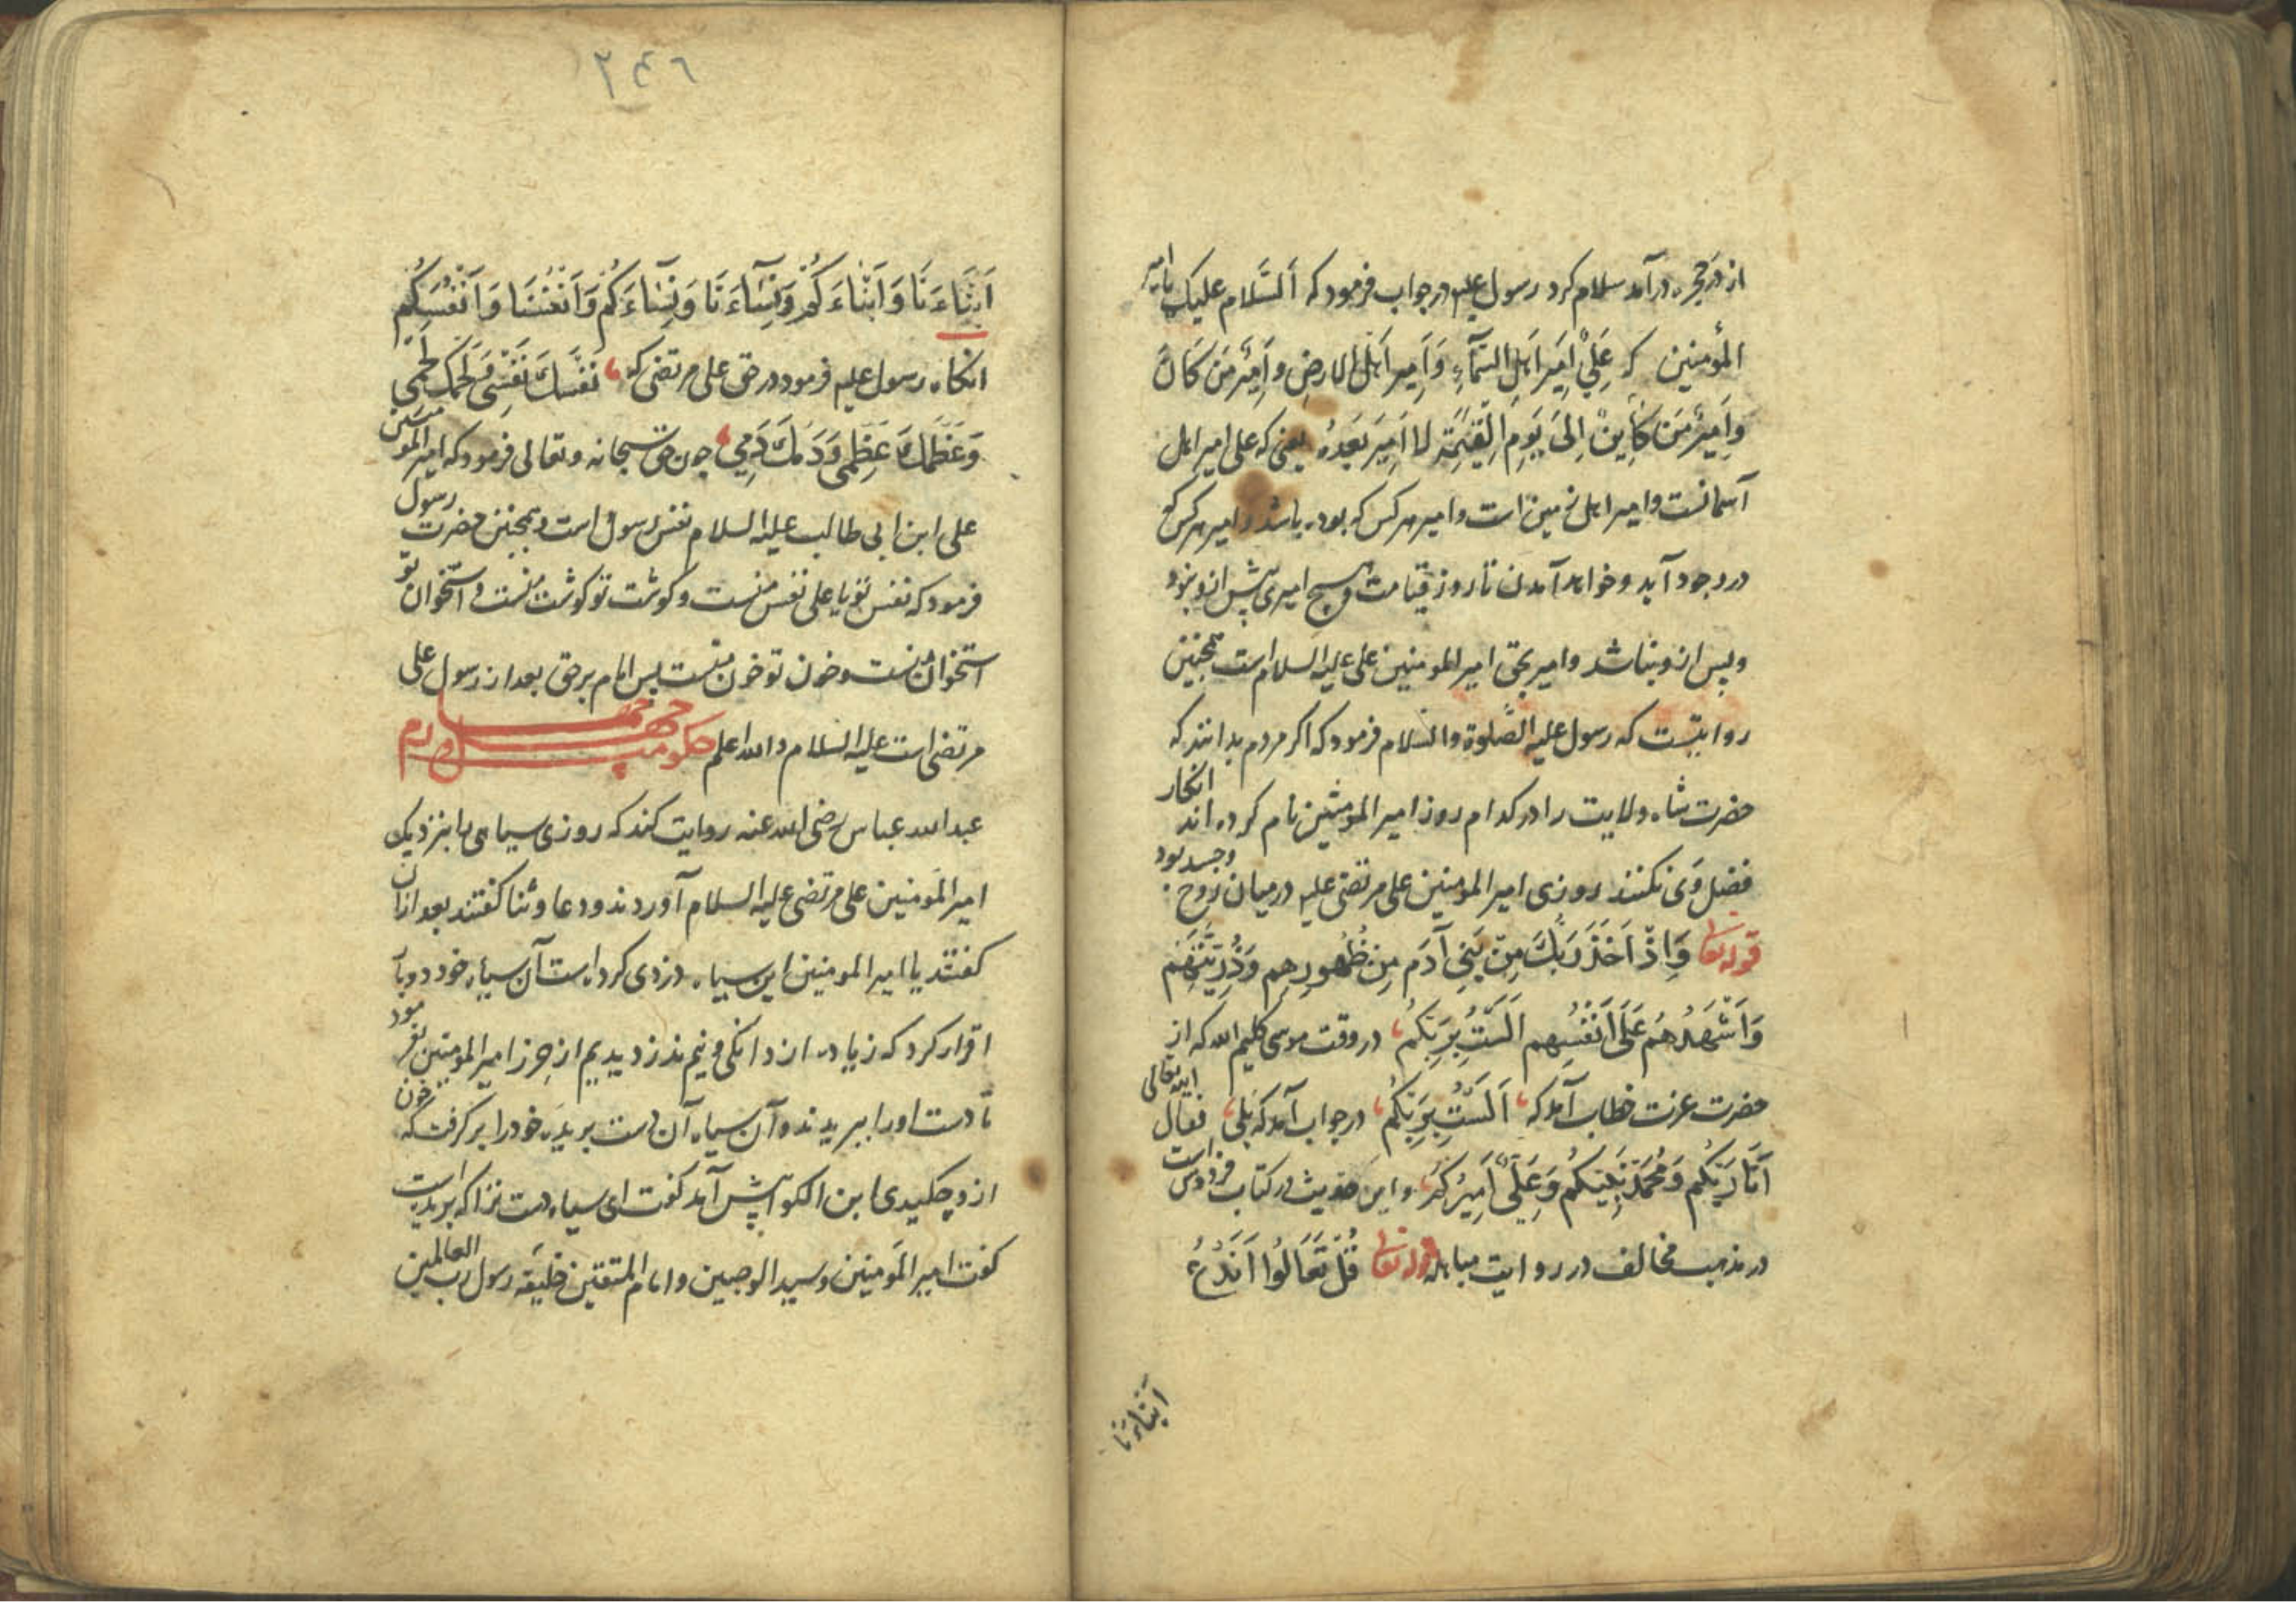 از در حجره درآمد سلام کرد رسول علیه در جواب فرمود که اَلسَّلام علیک یا امیر
المؤمنین که عَلِيٌّ اَمِیرُ اَهلِ السَّمآءِ وَاَمِیر اَهْلُ الارضِ و اَمِیْرُ مَنْ کَانَ
وَاَمِیْرُ مَن کَاِینْ اِلیَ یَومِ القِیٰمَةِ لا اَمِیرَ بَعَدهُ یعنی که علی امیر اهل
آسمانست و امیر اهل زمین است و امیر هر کس که بوده باشد و امیر هر کس که
در وجود آید و خواهد آمدن تا روز قیامت و هیچ امیری پیش ازو نبود
و پس ازو نباشد و امیر بحق امیر المومنین علی علیه السلام است همچنین
روایتست که رسول علیه الصَّلوة والسَّلام فرمود که اکر مردم بدانند که
حضرت شاه ولایت را در کدام روز امیر المومنین نام کرده اند انکار
فضل وی نکنند روزی امیر المومنین علی مرتضی علیه در میان روح وجسد بود
قوله تعالی وَاِذْ اَخَذَ رَبُّكَ مِنْ بَنِی آدَم مِن ظُهُورِهِم وَذُرِیَّتَهُم
وَاَشْهَدَهُم عَلَی اَنفُسِهِم اَلَسْتُ بِرَبِّکُم در وقت موسی کلیم الله که از
حضرت عزت خطاب آمد که اَلَسْتُ بِرَبِّکُم در جواب آمد که بَلی فقال الله تعالی
اَنَا رَبُّکُم وَمُحَمَّد نَبِیُّکُم وَعَلِیٌّ اَمِیرُکُم و این حدیث در کتاب فردوس است
در مذهب مخالف در روایت مباهله قوله تعالی قُلْ تَعَالَوُا اَنَدْعُ
اَبْنَاءَنَا
٢٤٦
اَبْنَاءَنَا وَاَبْنَاءَکُمْ وَنِسَآءَنَا وَنِسَآءَکُم وَاَنْفُسَنَا وَاَنْفُسَکُم
انکاه رسول علیه فرمود در حق علی مرتضی که نَفْسُكَ نَفْسِی وَلَحمُكَ لَحْمِی
وَعَظْمُكَ عَظْمِی وَدَمُكَ دَمِی چون حق سبحانه وتعالی فرمود که امیر المومنین
علی ابن ابی طالب علیه السلام نفس رسول است و همچنین حضرت رسول
فرمود که نفس تو یا علی نفس منست و کوشت تو کوشت منست و استخوان تو
استخوان منست و خون تو خون منست پس امام بر حق بعد از رسول علی
مرتضی است علیه السلام والله اعلم حکومت چهل و چهارم
عبدالله عباس رضی الله عنه روایت کند که روزی سیاهی را بنزدیک
امیر المَومنین علی مرتضی علیه السلام آوردند و دعا و ثنا کفتند بعد ازان
کفتند یا امیر المومنین این سیاه دزدی کرده است آن سیاه خود دوبار
اقرار کرد که زیاده از دانکی و نیم بدزدیدیم از حرز امیر المومنین بفرمود
تا دست او را ببریدند و آن سیاه آن دست بریده خود را بر کرفت که خون
ازو چکیدی ابن الکوا پیش آمد کفت ای سیاه دست ترا که بریده است
کفت امیر المَومنین و سید الوصیین و امام المتقین خلیفه رسول رب العالمین